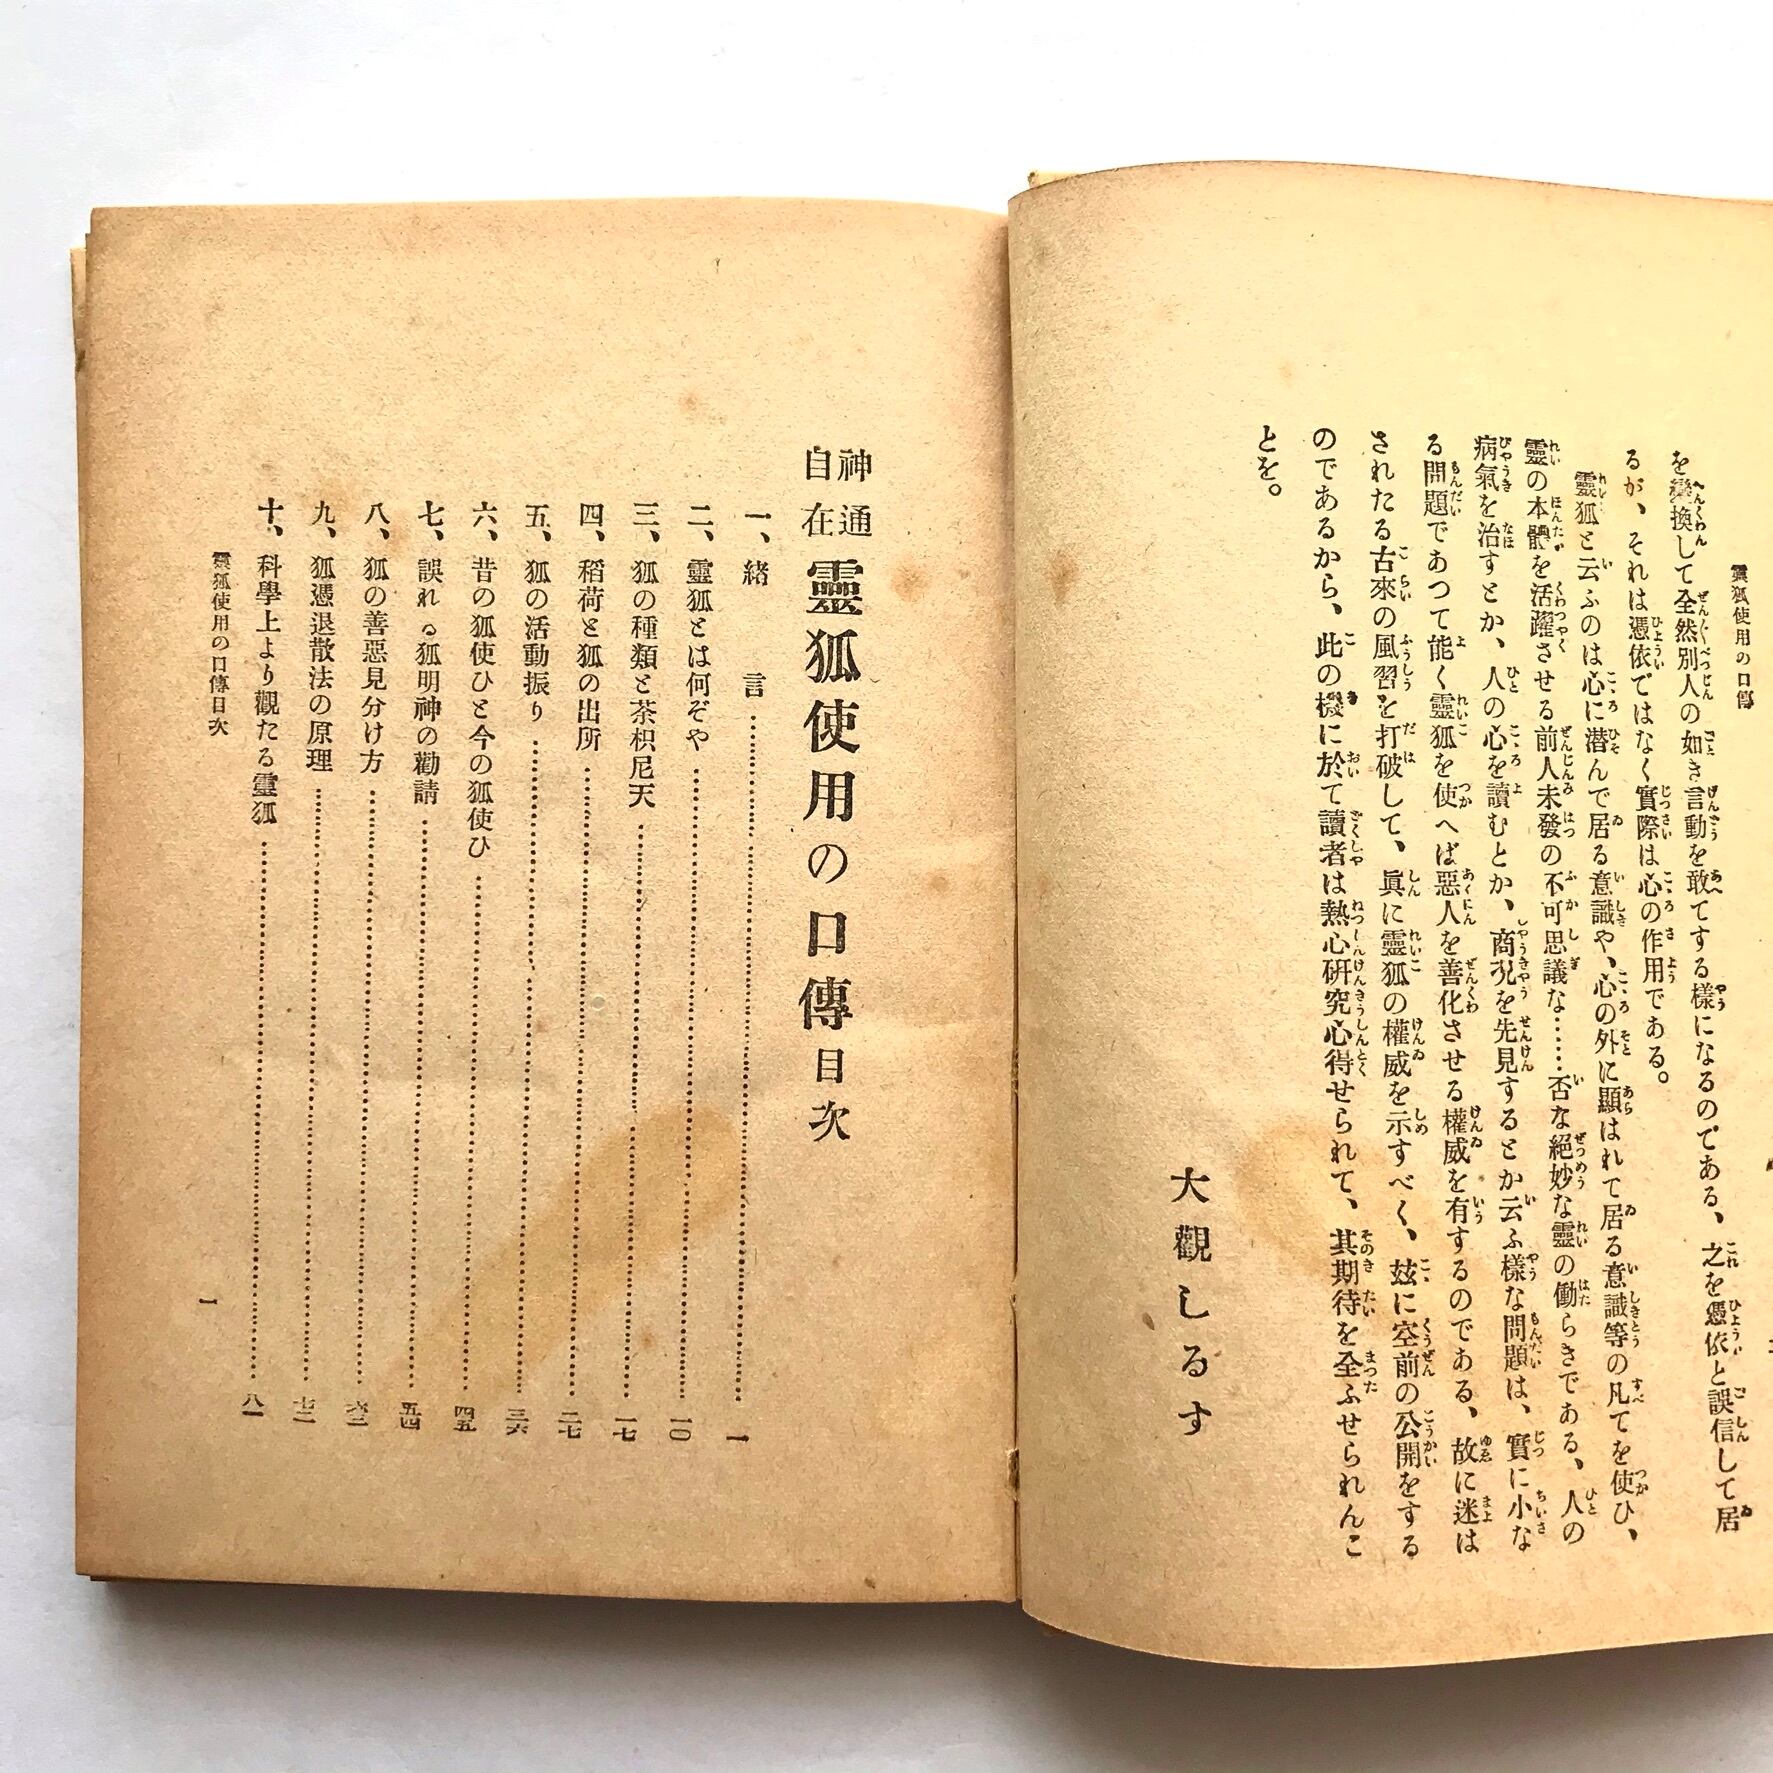 靈狐使用の口傳
を變換して全然別人の如き言動を敢てする樣になるのである、之を憑依と誤信して居
るが、それは憑依ではなく實際は心の作用である。
靈狐と云ふのは心に潜んで居る意識や、心の外に顯はれて居る意識等の凡てを使ひ、
靈の本體を活躍させる前人未發の不可思議な……否な絕妙な靈の働らきである、人の
病氣を治すとか、人の心を讀むとか、商況を先見するとか云ふ樣な問題は、實に小な
る問題であつて能く靈狐を使へば惡人を善化させる權威を有するのである、故に迷は
されたる古來の風習を打破して、眞に靈狐の權威を示すべく、玆に空前の公開をする
のであるから、此の機に於て讀者は熱心硏究心得せられて、其期待を全ふせられんこ
とを。
大觀しるす
神通自在 靈狐使用の口傳目次
一、緖言……一
二、靈狐とは何ぞや……一〇
三、狐の種類と茶枳尼天……一七
四、稻荷と狐の出所……二七
五、狐の活動振り……三六
六、昔の狐使ひと今の狐使ひ……四五
七、誤れる狐明神の勸請……五四
八、狐の善惡見分け方……六三
九、狐憑退散法の原理……七二
十、科學上より觀たる靈狐……八一
靈狐使用の口傳目次
一